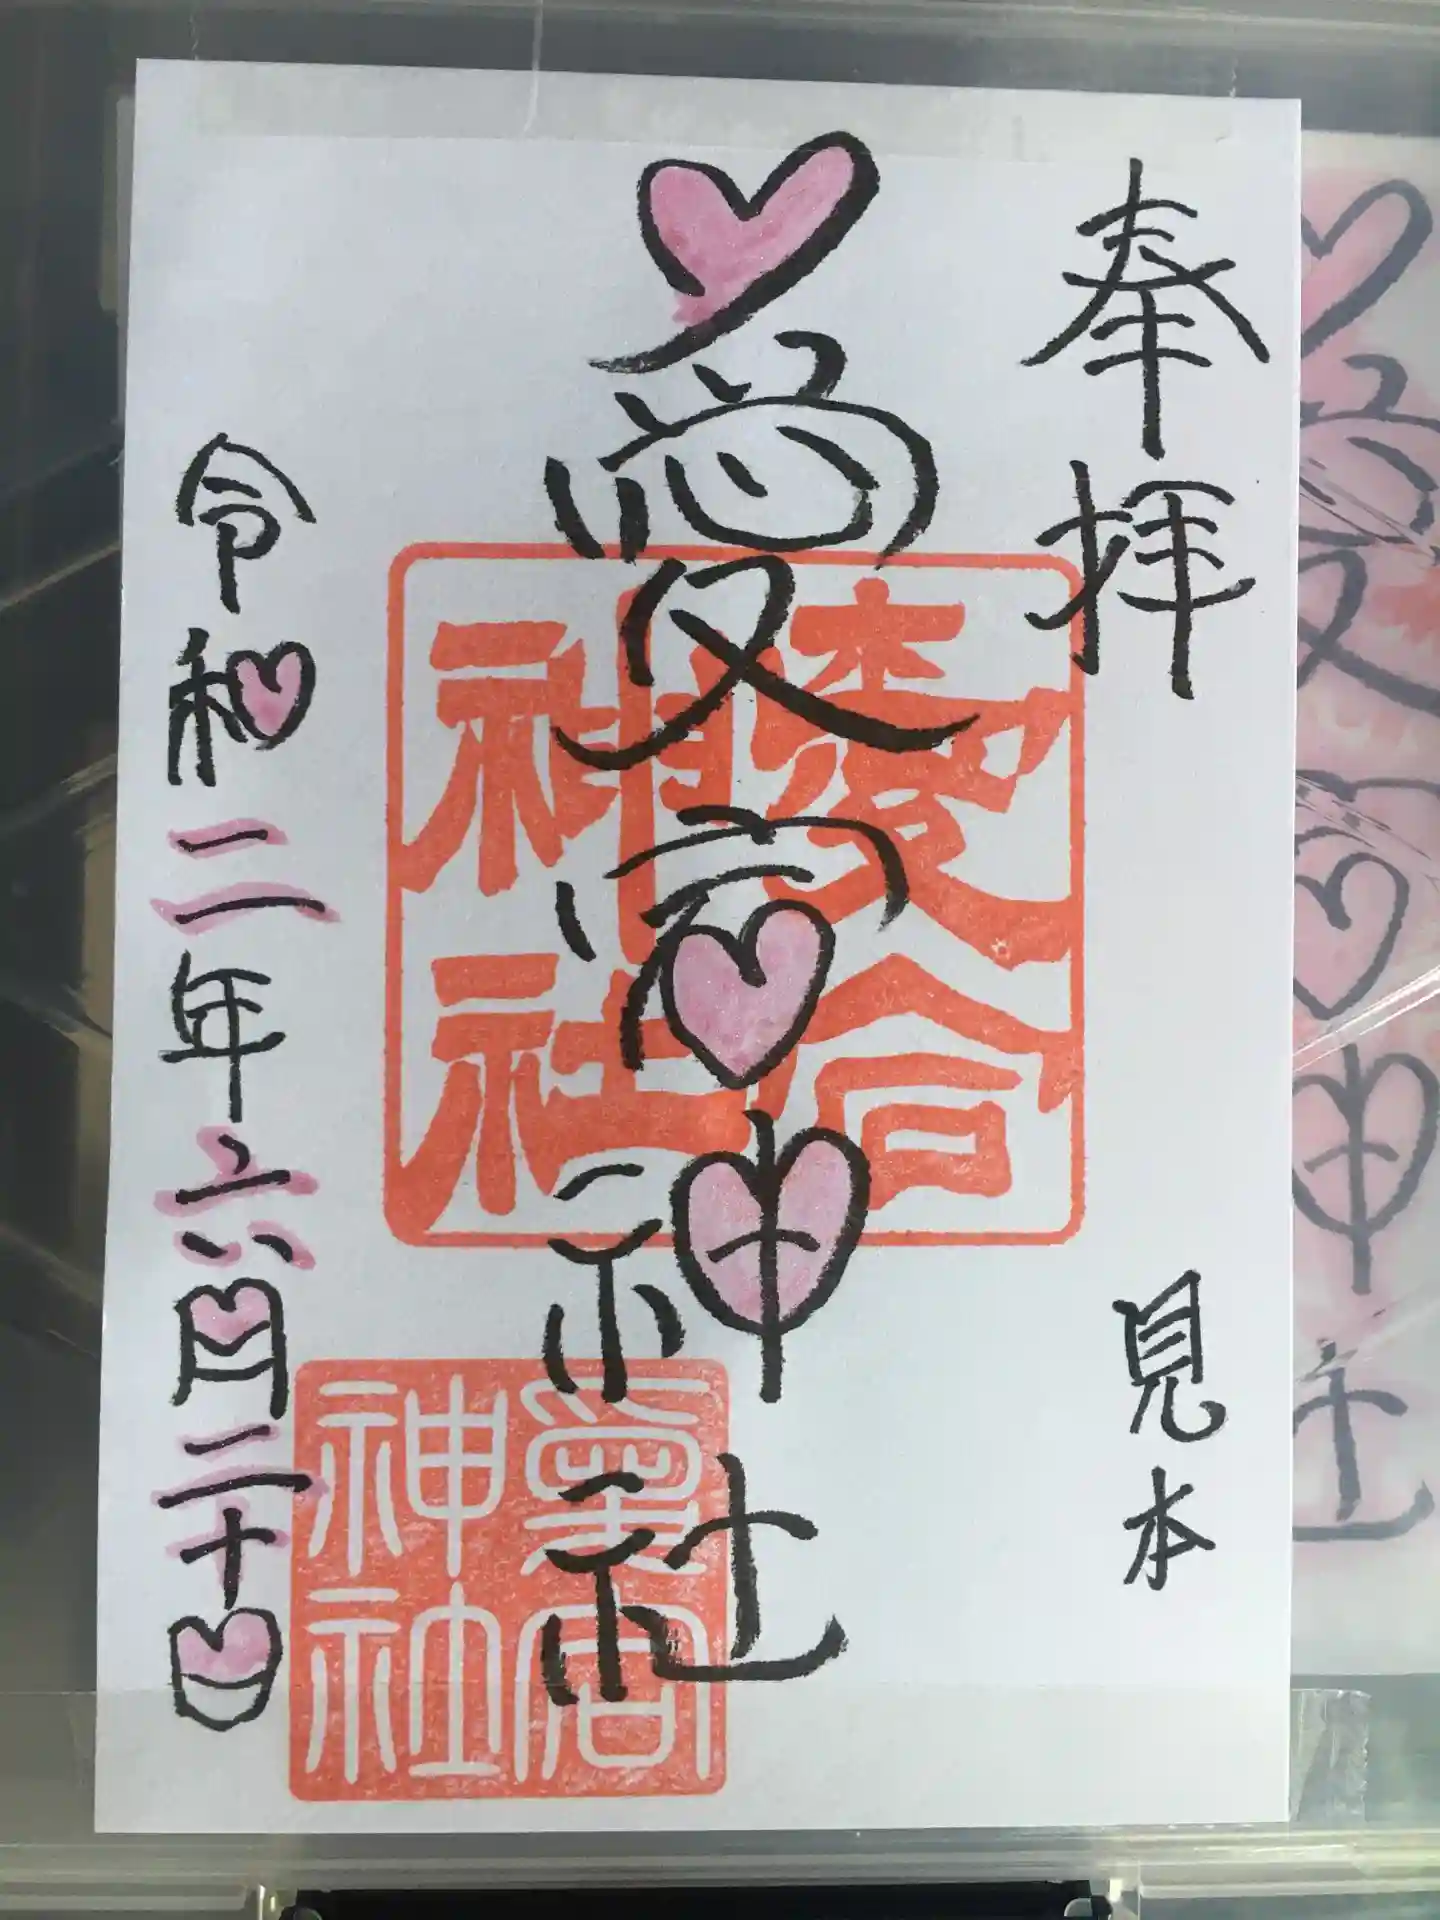 奉拝
見本
愛宕神社
令和二年六月二十日
神社
愛宕
神社